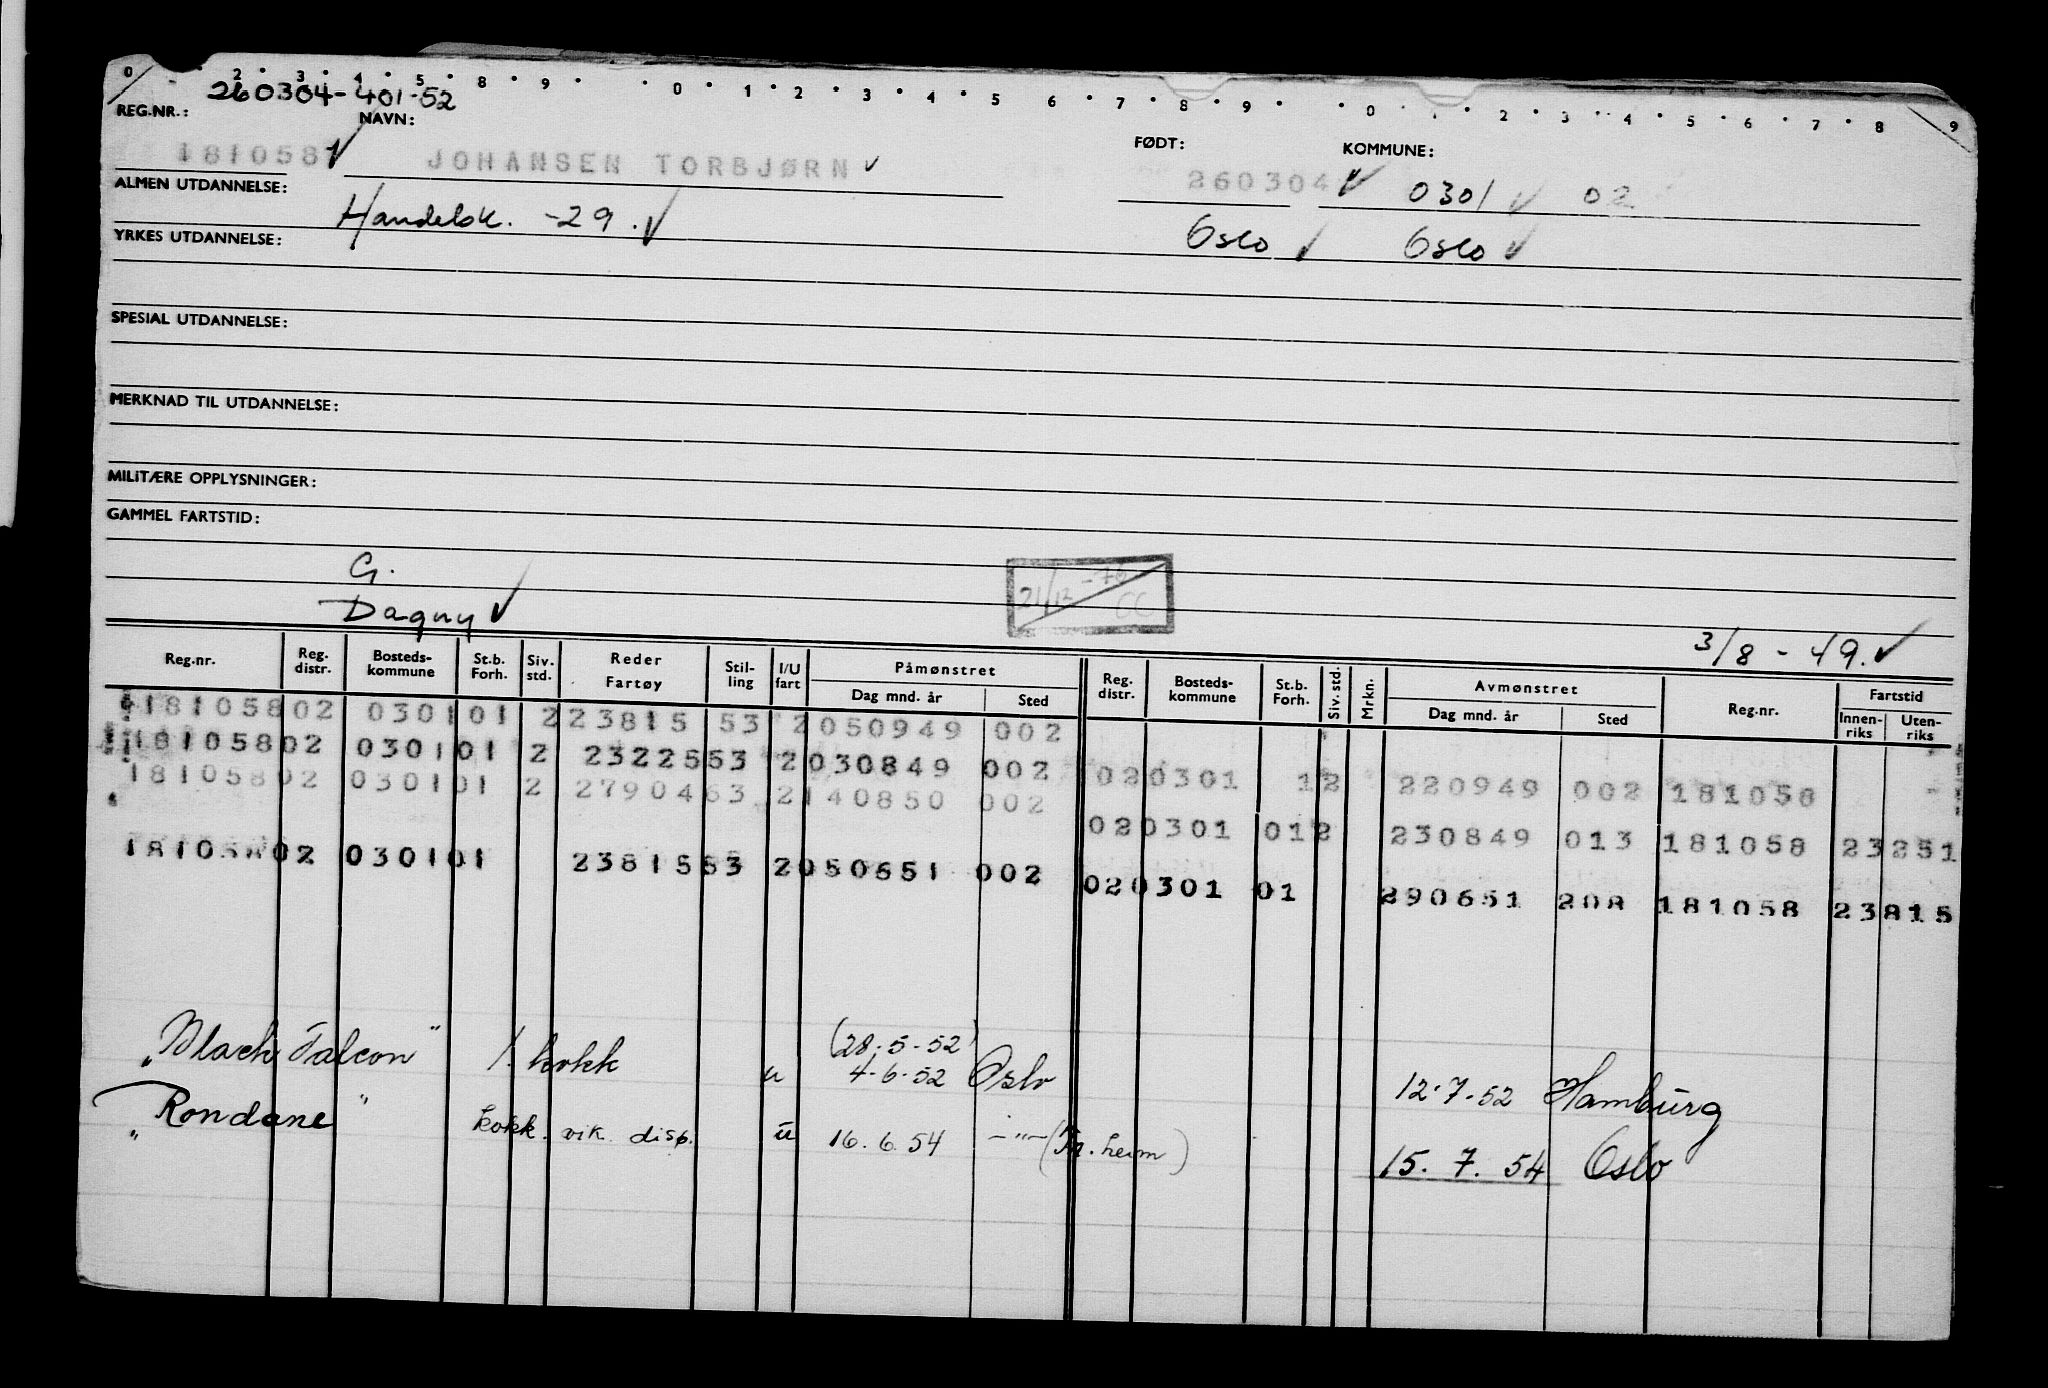 0 2 3 4 5 8 9 0 1 2 3 4 5 6 7 8 9 0 2 3 4 5 6 7 8 9
260304-401-52
REG.NR.: NAVN: FØDT: KOMMUNE:
181058 JOHANSEN TORBJØRN 260304 0301 02
ALMEN UTDANNELSE: Handelsk. -29. Oslo Oslo
YRKES UTDANNELSE:
SPESIAL UTDANNELSE:
MERKNAD TIL UTDANNELSE:
MILITÆRE OPPLYSNINGER:
GAMMEL FARTSTID:
G.
Dagny
21/12 -76
CC
3/8 - 49.
Reg.nr. Reg. distr. Bosteds-kommune St.b. Forh. Siv. std. Reder Fartøy Stil-ling I/U fart Påmønstret Dag mnd. år Sted Reg. distr. Bosteds-kommune St.b. Forh. Siv. std. Mrkn. Avmønstret Dag mnd. år Sted Reg.nr. Fartstid Innen-riks Uten-riks
181058 02 0301 01 2 23815 53 2 050949 002
181058 02 0301 01 2 23225 53 2 030849 002 02 0301 1 2 220949 002 181058
181058 02 0301 01 2 27904 63 2 140850 002 02 0301 01 2 230849 013 181058 23251
181058 02 0301 01 23815 53 2 050651 002 02 0301 01 290651 208 181058 23815
(28.5.52)
"Black Falcon" 1. kokk u 4.6.52 Oslo 12.7.52 Hamburg
"Rondane" kokk. vik. disp. u 16.6.54 -"- (Tr.heim) 15.7.54 Oslo